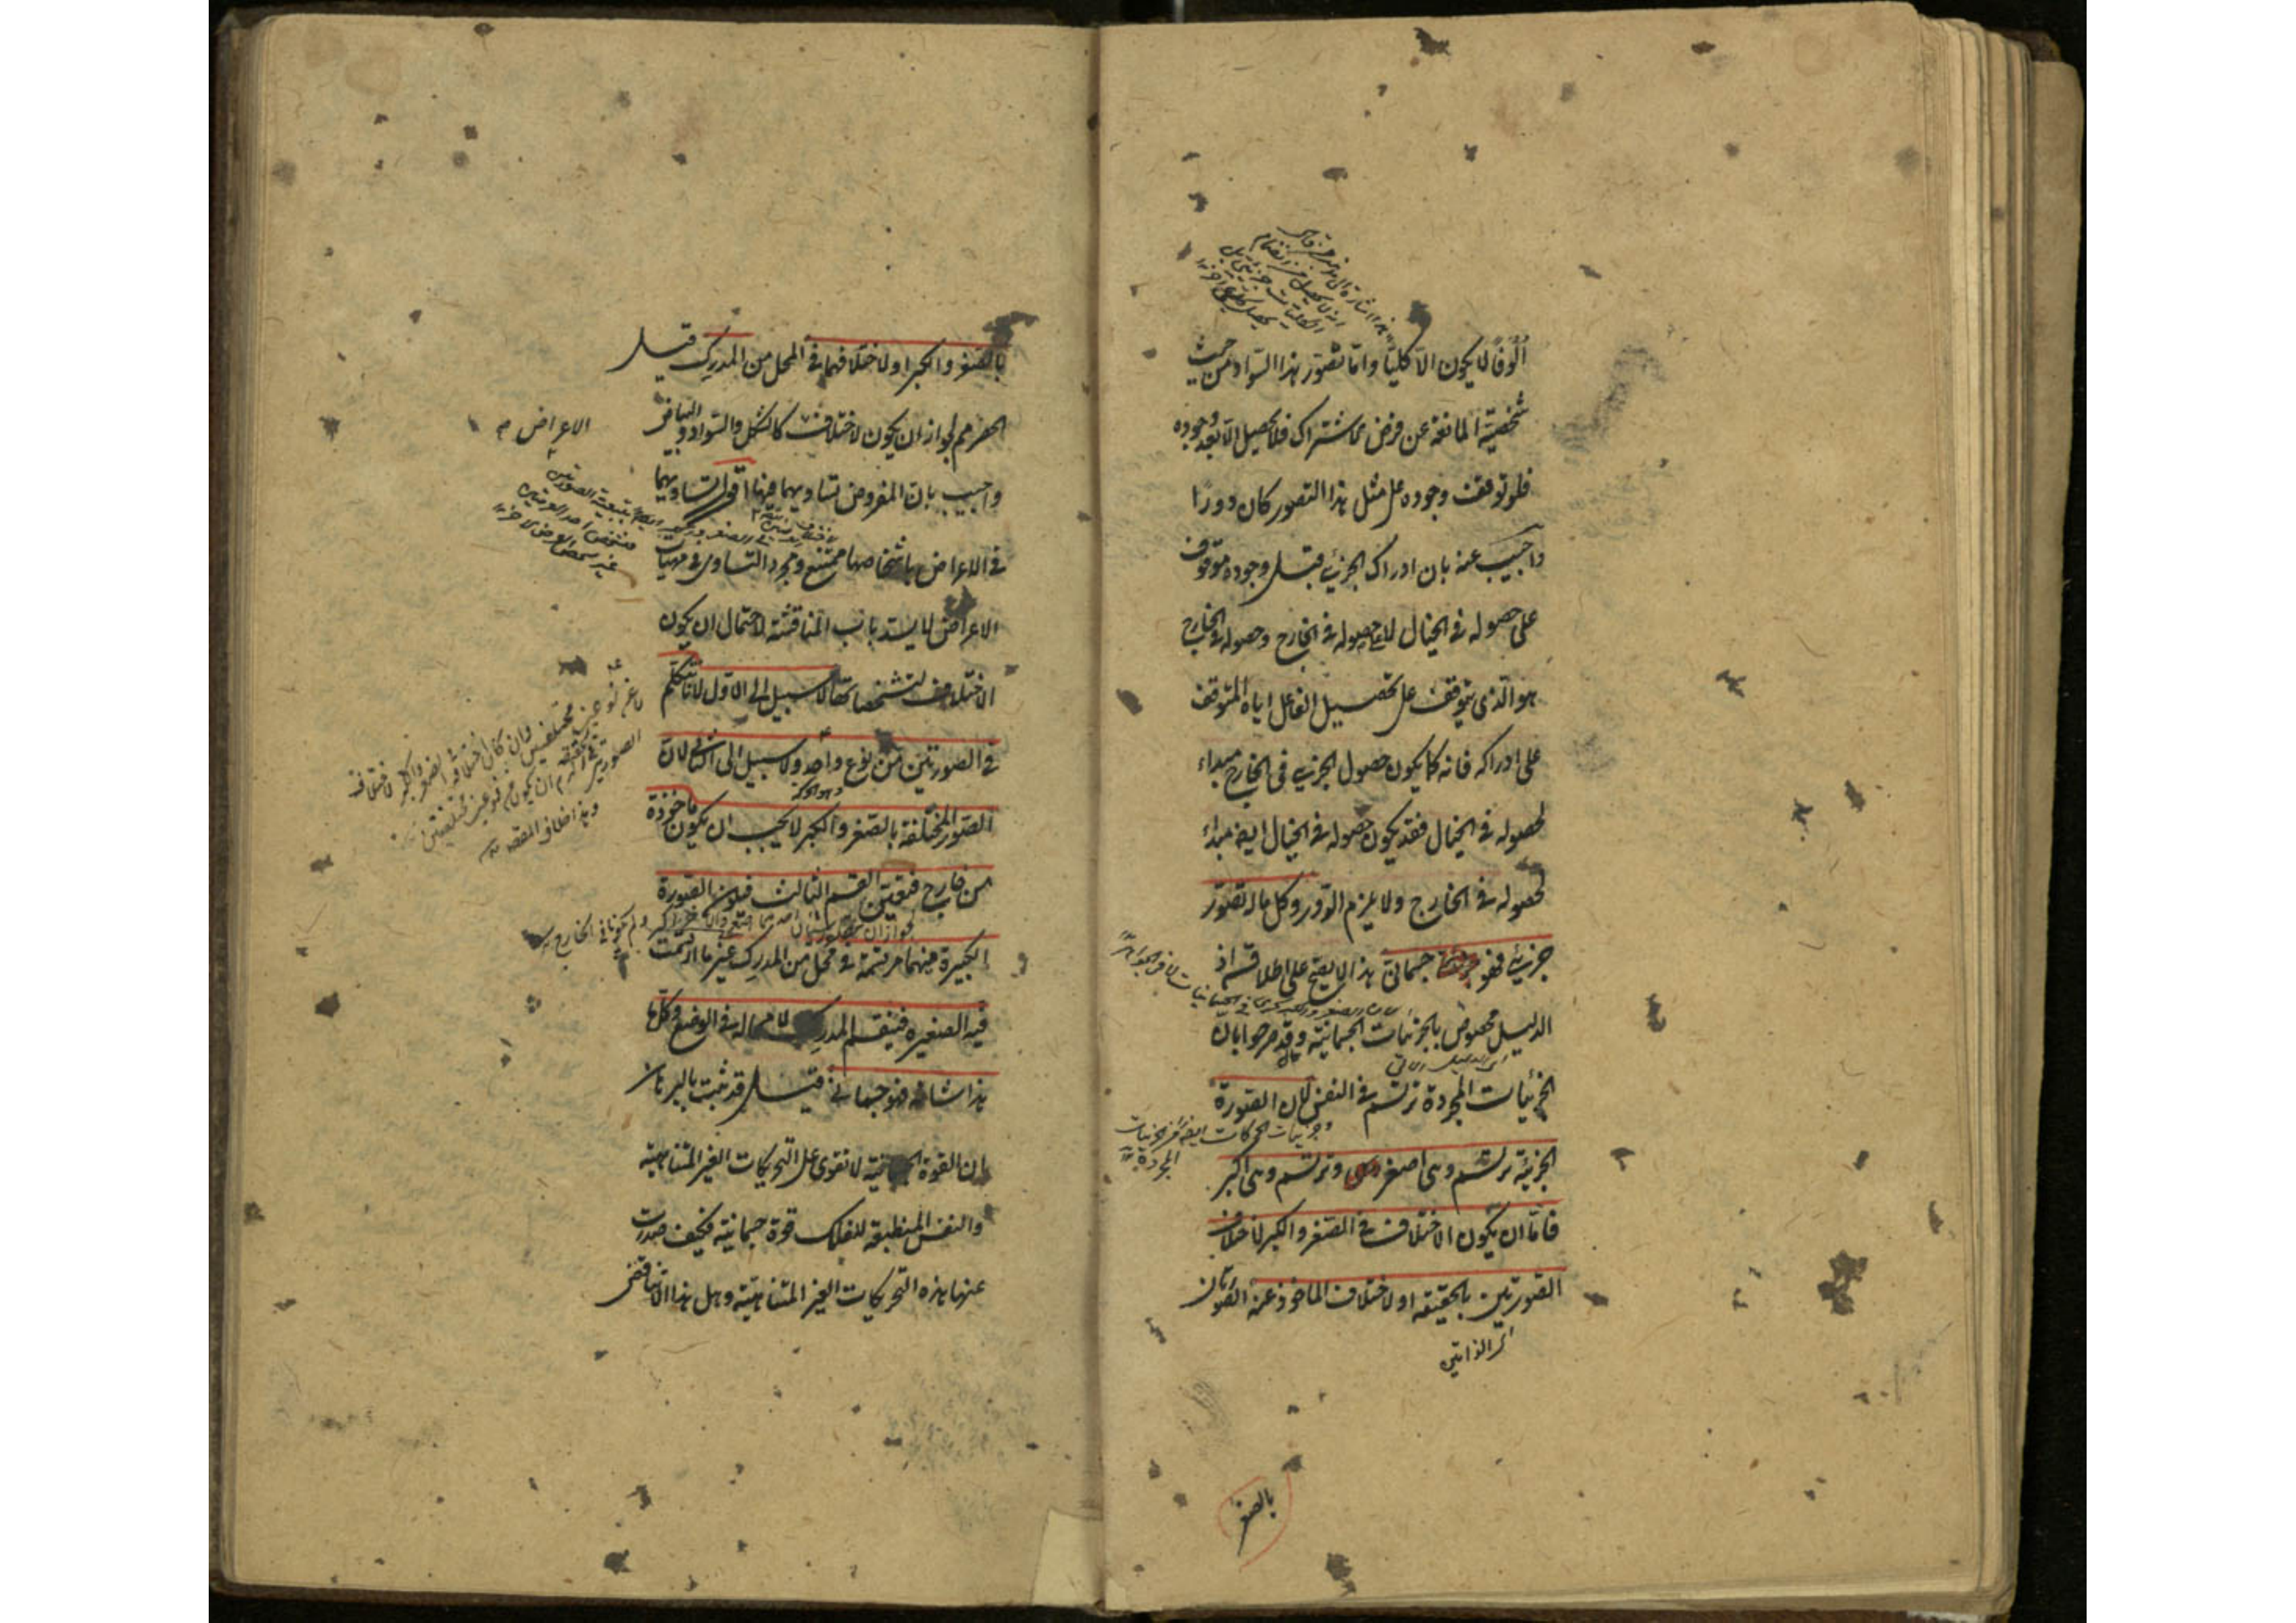 الوفا لا يكون الا كليا واما تصور هذا السواد من حيث
شخصيته المانعة عن فرض الاشتراك فلا يحصل الا بعد وجوده
فلو توقف وجوده على مثل هذا التصور كان دورا
واجيب عنه بان ادراك الجزئى قبل وجوده موقوف
على حصوله فى الخيال لا على حصوله فى الخارج وحصوله فى الخارج
هو الذى يتوقف على تحصيل الفاعل اياه المتوقف
على ادراكه فانه كما يكون حصول الجزئى فى الخارج مبداء
لحصوله فى الخيال فقد يكون حصوله فى الخيال ايضا مبداء
لحصوله فى الخارج ولا يلزم الدور وكل ما له تصور
جزئى فهو جسمانى هذا لا يصح على اطلاقه اذ
الدليل مخصوص بالجزئيات الجسمانية وقد صرحوا بان
اى الدليل الاتى
الجزئيات المجردة ترتسم فى النفس لان الصورة
وجزئيات الحركات ايضا من الجزئيات
المجردة
الجزئية ترتسم وهى اصغر وترتسم وهى اكبر
فاما ان يكون الاختلاف فى الصغر والكبر لاختلاف
الصورتين بالحقيقة او لاختلاف الماخوذ عنه الصورتان
اى الذاتى
بالصغر
بالصغر والكبر او لاختلافهما فى المحل من المدرك قيل
الحصر مم لجواز ان يكون لاختلاف كالشكل والسواد والبياض
الاعراض
واجيب بان المفروض تساويهما فيها اقول تساويهما
فى الاعراض باشخاصها ممتنع ومجرد التساوى فى مهيات
الاعراض لا يسد باب المناقشة لاحتمال ان يكون
الاختلاف لتشخصاتها لا سبيل الى الاول لانا نتكلم
فى الصورتين من نوع واحد ولا سبيل الى الثانى لان
الصور المختلفة بالصغر والكبر لا يجب ان يكون ماخوذة
من خارج فتعين القسم الثالث فيكون الصورة
الكبيرة منهما مرتسمة فى محل من المدرك غير ما ارتسمت
فيه الصغيرة فينقسم المدرك لا محالة فى الوضع وكل ما
هذا شانه فهو جسمانى قيل قد ثبت بالبرهان
ان القوة الجسمانية لا تقوى على التحريكات الغير المتناهية
والنفس المنطبعة للفلك قوة جسمانية فكيف صدرت
عنها هذه التحريكات الغير المتناهية وهل هذا الا تناقض